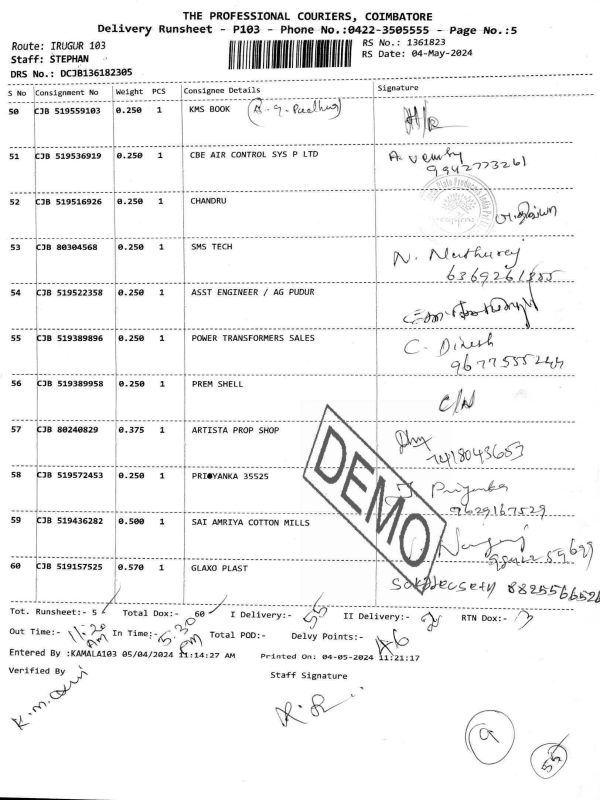 THE PROFESSIONAL COURIERS, COIMBATORE
Delivery Runsheet - P103 - Phone No.:0422-3505555 - Page No.:5
Route: IRUGUR 103 RS No.: 1361823
Staff: STEPHAN RS Date: 04-May-2024
DRS No.: DCJB136182305
S No Consignment No Weight PCS Consignee Details Signature
50 CJB 519559103 0.250 1 KMS BOOK
51 CJB 519536919 0.250 1 CBE AIR CONTROL SYS P LTD
9942773261
52 CJB 519516926 0.250 1 CHANDRU
53 CJB 80304568 0.250 1 SMS TECH N. Muthuraj
54 CJB 519522358 0.250 1 ASST ENGINEER / AG PUDUR
55 CJB 519389896 0.250 1 POWER TRANSFORMERS SALES C. Dinesh
56 CJB 519389958 0.250 1 PREM SHELL
57 CJB 80240829 0.375 1 ARTISTA PROP SHOP
7418043653
58 CJB 519572453 0.250 1 PRIYANKA 35525 Priyanka
9629167529
59 CJB 519436282 0.500 1 SAI AMRIYA COTTON MILLS
60 CJB 519157525 0.570 1 GLAXO PLAST
DEMO
Tot. Runsheet:- 5 Total Dox:- 60 I Delivery:- 55 II Delivery:- RTN Dox:- 3
Out Time:- 11:20 AM In Time:- 5:30 PM Total POD:- Delvy Points:- 46
Entered By :KAMALA103 05/04/2024 11:14:27 AM Printed On: 04-05-2024 11:21:17
Verified By Staff Signature
9
55